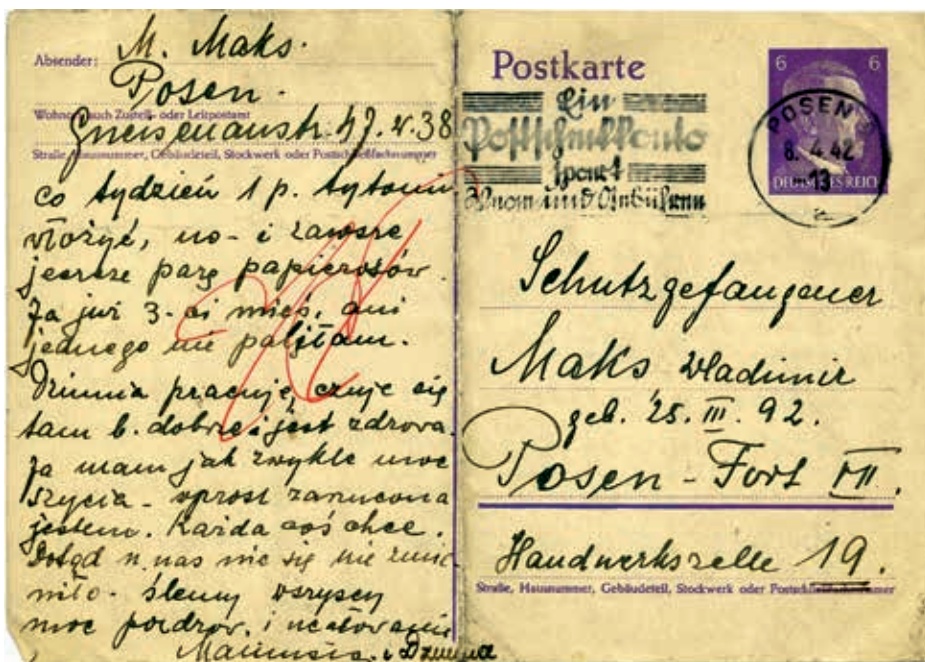 Absender: M. Maks.
Posen.
Wohnort, auch Zustell- oder Leitpostamt
Gneisenaustr. 47. w. 38
Straße, Hausnummer, Gebäudeteil, Stockwerk oder Postschließfachnummer
co tydzień 1 p. tytoniu
włożyć, no - i zawsze
jeszcze parę papierosów.
Ja już 3-ci mieś. ani
jednego nie paliłam.
pracuję, czuje się
tam b. dobrze i jest zdrowa.
Ja mam jak zwykle moc
szycia - wprost zarzucona
jestem. Każda coś chce.
Dotąd u nas nic się nie zmie-
niło - ślemy wszyscy
moc pozdrow. i ucałowania
i
Postkarte
6 6
DEUTSCHES REICH
Ein
Postscheckkonto
spart
und Gebühren
POSEN
8.4.42
-13
Schutzgefangener
Maks Wladimir
geb. 25. III. 92.
Posen - Fort VII.
Handwerkszelle 19.
Straße, Hausnummer, Gebäudeteil, Stockwerk oder Postschließfachnummer